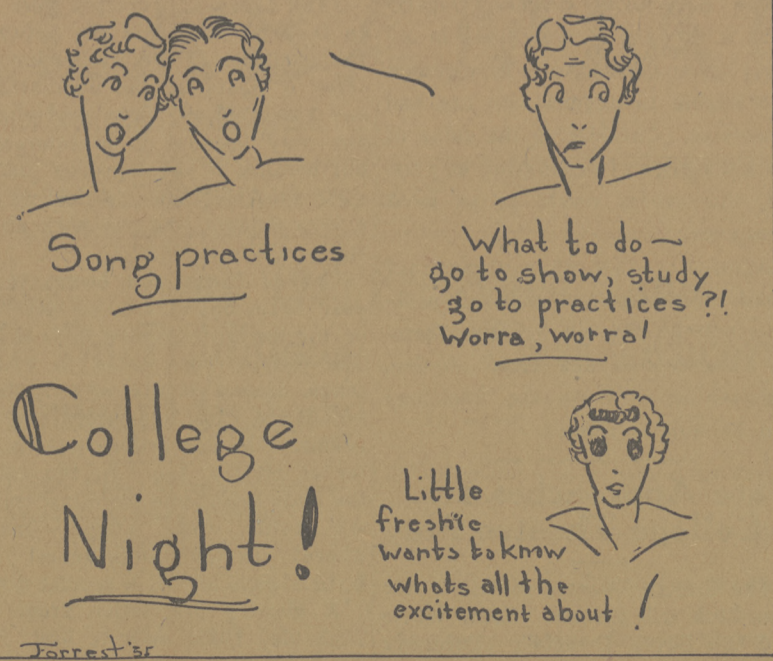 Song practices
What to do —
go to show, study
go to practices ?!
Worra, worra!
College
Night!
Little
freshie
wants to know
whats all the
excitement about!
Forrest '35